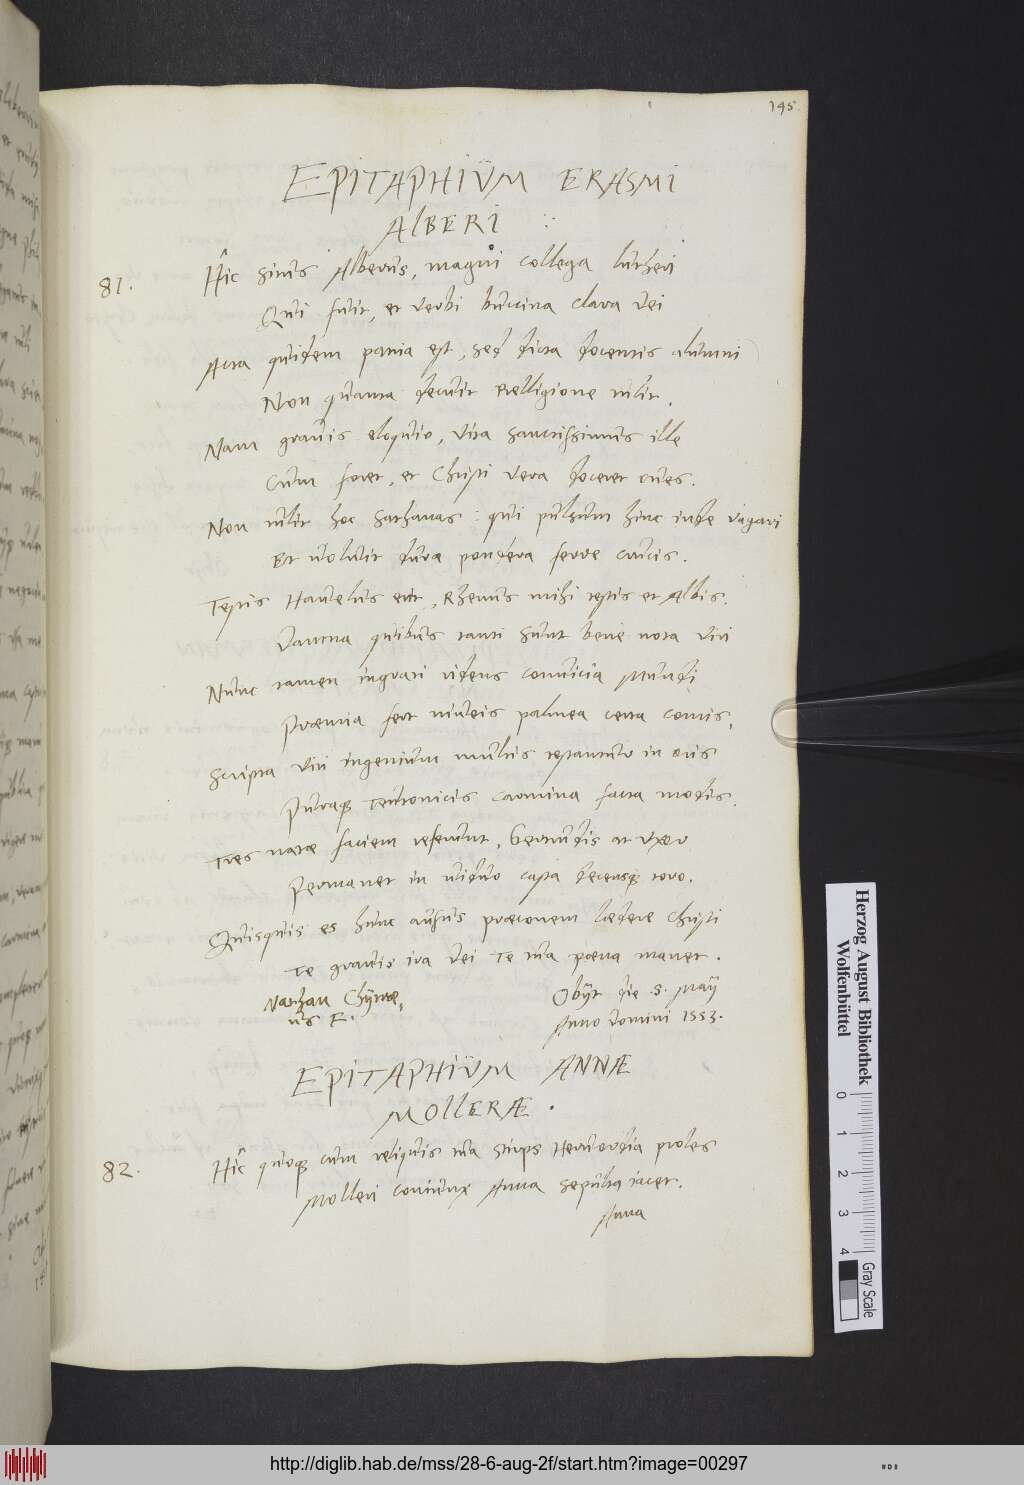 195
EPITAPHIŬM ERASMI
ALBERI
81. Hîc situs Alberus, magni collega Lutheri
Qui fuit, et verbi buccina clara Dei
Acta quidem patria est, sed dicta docentis alumni
Non quanta decuit Relligione tulit.
Nam gravis eloquio, vita sanctissimus ille
Cum foret, et Christi vera doceret oues.
Non tulit hoc Sathanas: qui pulsum hinc inde vagari
Et uoluit dura pondera ferre crucis.
Testis erit, Rhenus mihi testis et Albis.
quibus tanti sunt bene nota viri
Nunc tamen ingrati ridens conuicia Mundi
Præmia fert niueis palmea certa comis,
Scripta viri ingenium multis testantur in oris
Teutonicis carmina facta modis.
Tres natæ faciem referunt, Gertrudis at vxor
Permanet in uiduo casta decensq; toro.
Quisquis es hunc ausus præconem lædere Christi
Te grauis ira Dei te tua pœna manet.
Nathan Chytræ,
us F.
Obijt die .5. Maij
Anno Domini 1553.
EPITAPHIŬM ANNÆ
MOLLERÆ.
82. Hîc quoq; cum reliquis tua stirps proles
Molleri coniunx Anna sepulta iacet.
Anna
Herzog August Bibliothek
Wolfenbüttel
0 1 2 3 4
Gray Scale
http://diglib.hab.de/mss/28-6-aug-2f/start.htm?image=00297